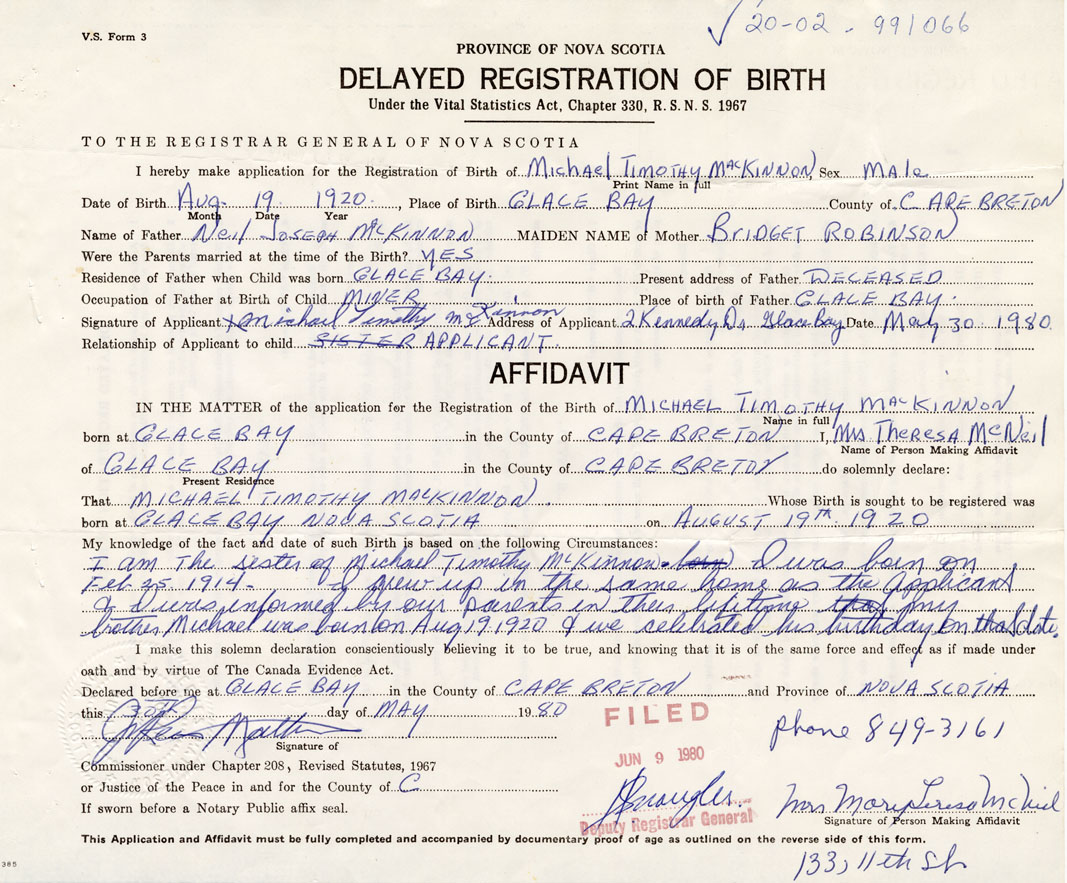 ✓ 20-02 - 991066
V.S. Form 3
PROVINCE OF NOVA SCOTIA
DELAYED REGISTRATION OF BIRTH
Under the Vital Statistics Act, Chapter 330, R. S. N. S. 1967
TO THE REGISTRAR GENERAL OF NOVA SCOTIA
I hereby make application for the Registration of Birth of Michael Timothy MacKinnon, Sex Male
Print Name in full
Date of Birth Aug. 19 1920, Place of Birth GLACE BAY County of CAPE BRETON
Month Date Year
Name of Father Neil Joseph McKinnon MAIDEN NAME of Mother Bridget Robinson
Were the Parents married at the time of the Birth? YES
Residence of Father when Child was born GLACE BAY. Present address of Father DECEASED
Occupation of Father at Birth of Child MINER Place of birth of Father GLACE BAY.
Signature of Applicant x Michael Timothy McKinnon Address of Applicant 2 Kennedy Dr Glace Bay Date May 30 1980
Relationship of Applicant to child SISTER APPLICANT.
AFFIDAVIT
IN THE MATTER of the application for the Registration of the Birth of MICHAEL TIMOTHY MACKINNON
Name in full
born at GLACE BAY in the County of CAPE BRETON I, Mrs Theresa McNeil
Name of Person Making Affidavit
of GLACE BAY in the County of CAPE BRETON do solemnly declare:
Present Residence
That MICHAEL TIMOTHY MACKINNON. Whose Birth is sought to be registered was
born at GLACE BAY NOVA SCOTIA on AUGUST 19th 1920
My knowledge of the fact and date of such Birth is based on the following Circumstances:
I am The sister of Michael Timothy McKinnon. born I was born on
Feb 25 1914. I grew up in the same home as the applicant
& I was informed by our parents in their lifetime that my
brother, Michael was born on Aug 19, 1920 & we celebrated his birthday on that date.
I make this solemn declaration conscientiously believing it to be true, and knowing that it is of the same force and effect as if made under
oath and by virtue of The Canada Evidence Act.
Declared before me at GLACE BAY in the County of CAPE BRETON and Province of NOVA SCOTIA
this 30th day of MAY 1980
FILED
phone 849-3161
Signature of
JUN 9 1980
Commissioner under Chapter 208, Revised Statutes, 1967
or Justice of the Peace in and for the County of C
If sworn before a Notary Public affix seal.
Mrs Mary Teresa McNeil
Deputy Registrar General
Signature of Person Making Affidavit
This Application and Affidavit must be fully completed and accompanied by documentary proof of age as outlined on the reverse side of this form.
133, 11th St
385